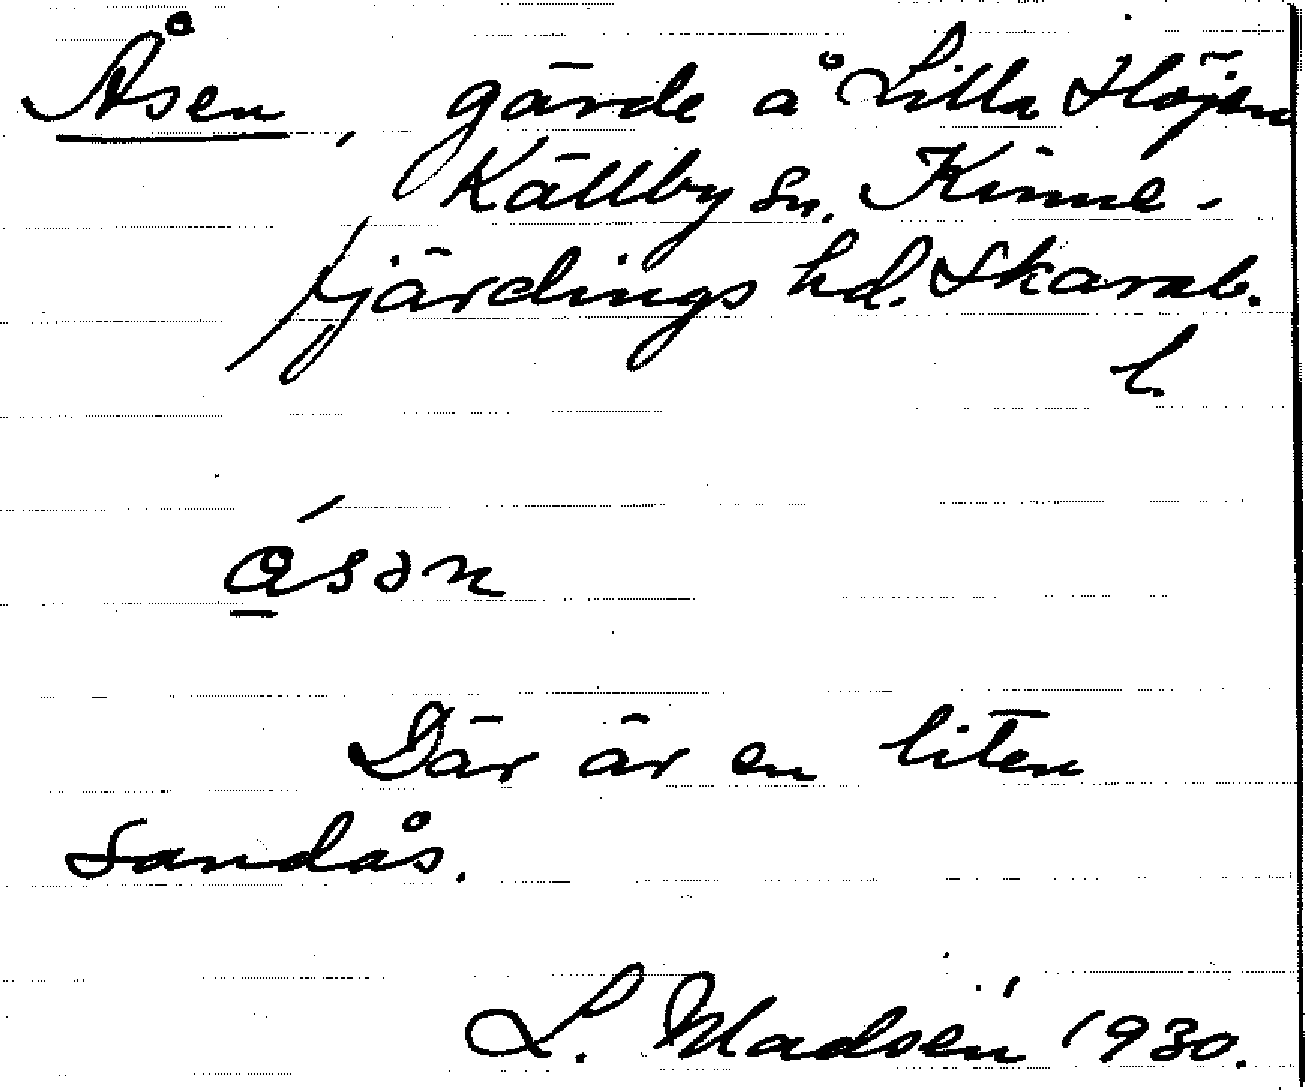 Åsen, gärde å Lilla Höjen
Källby sn. Kinne-
fjärdings hd. Skarab.
l.
åsən
Där är en liten
sandås.
L. Madsén 1930.